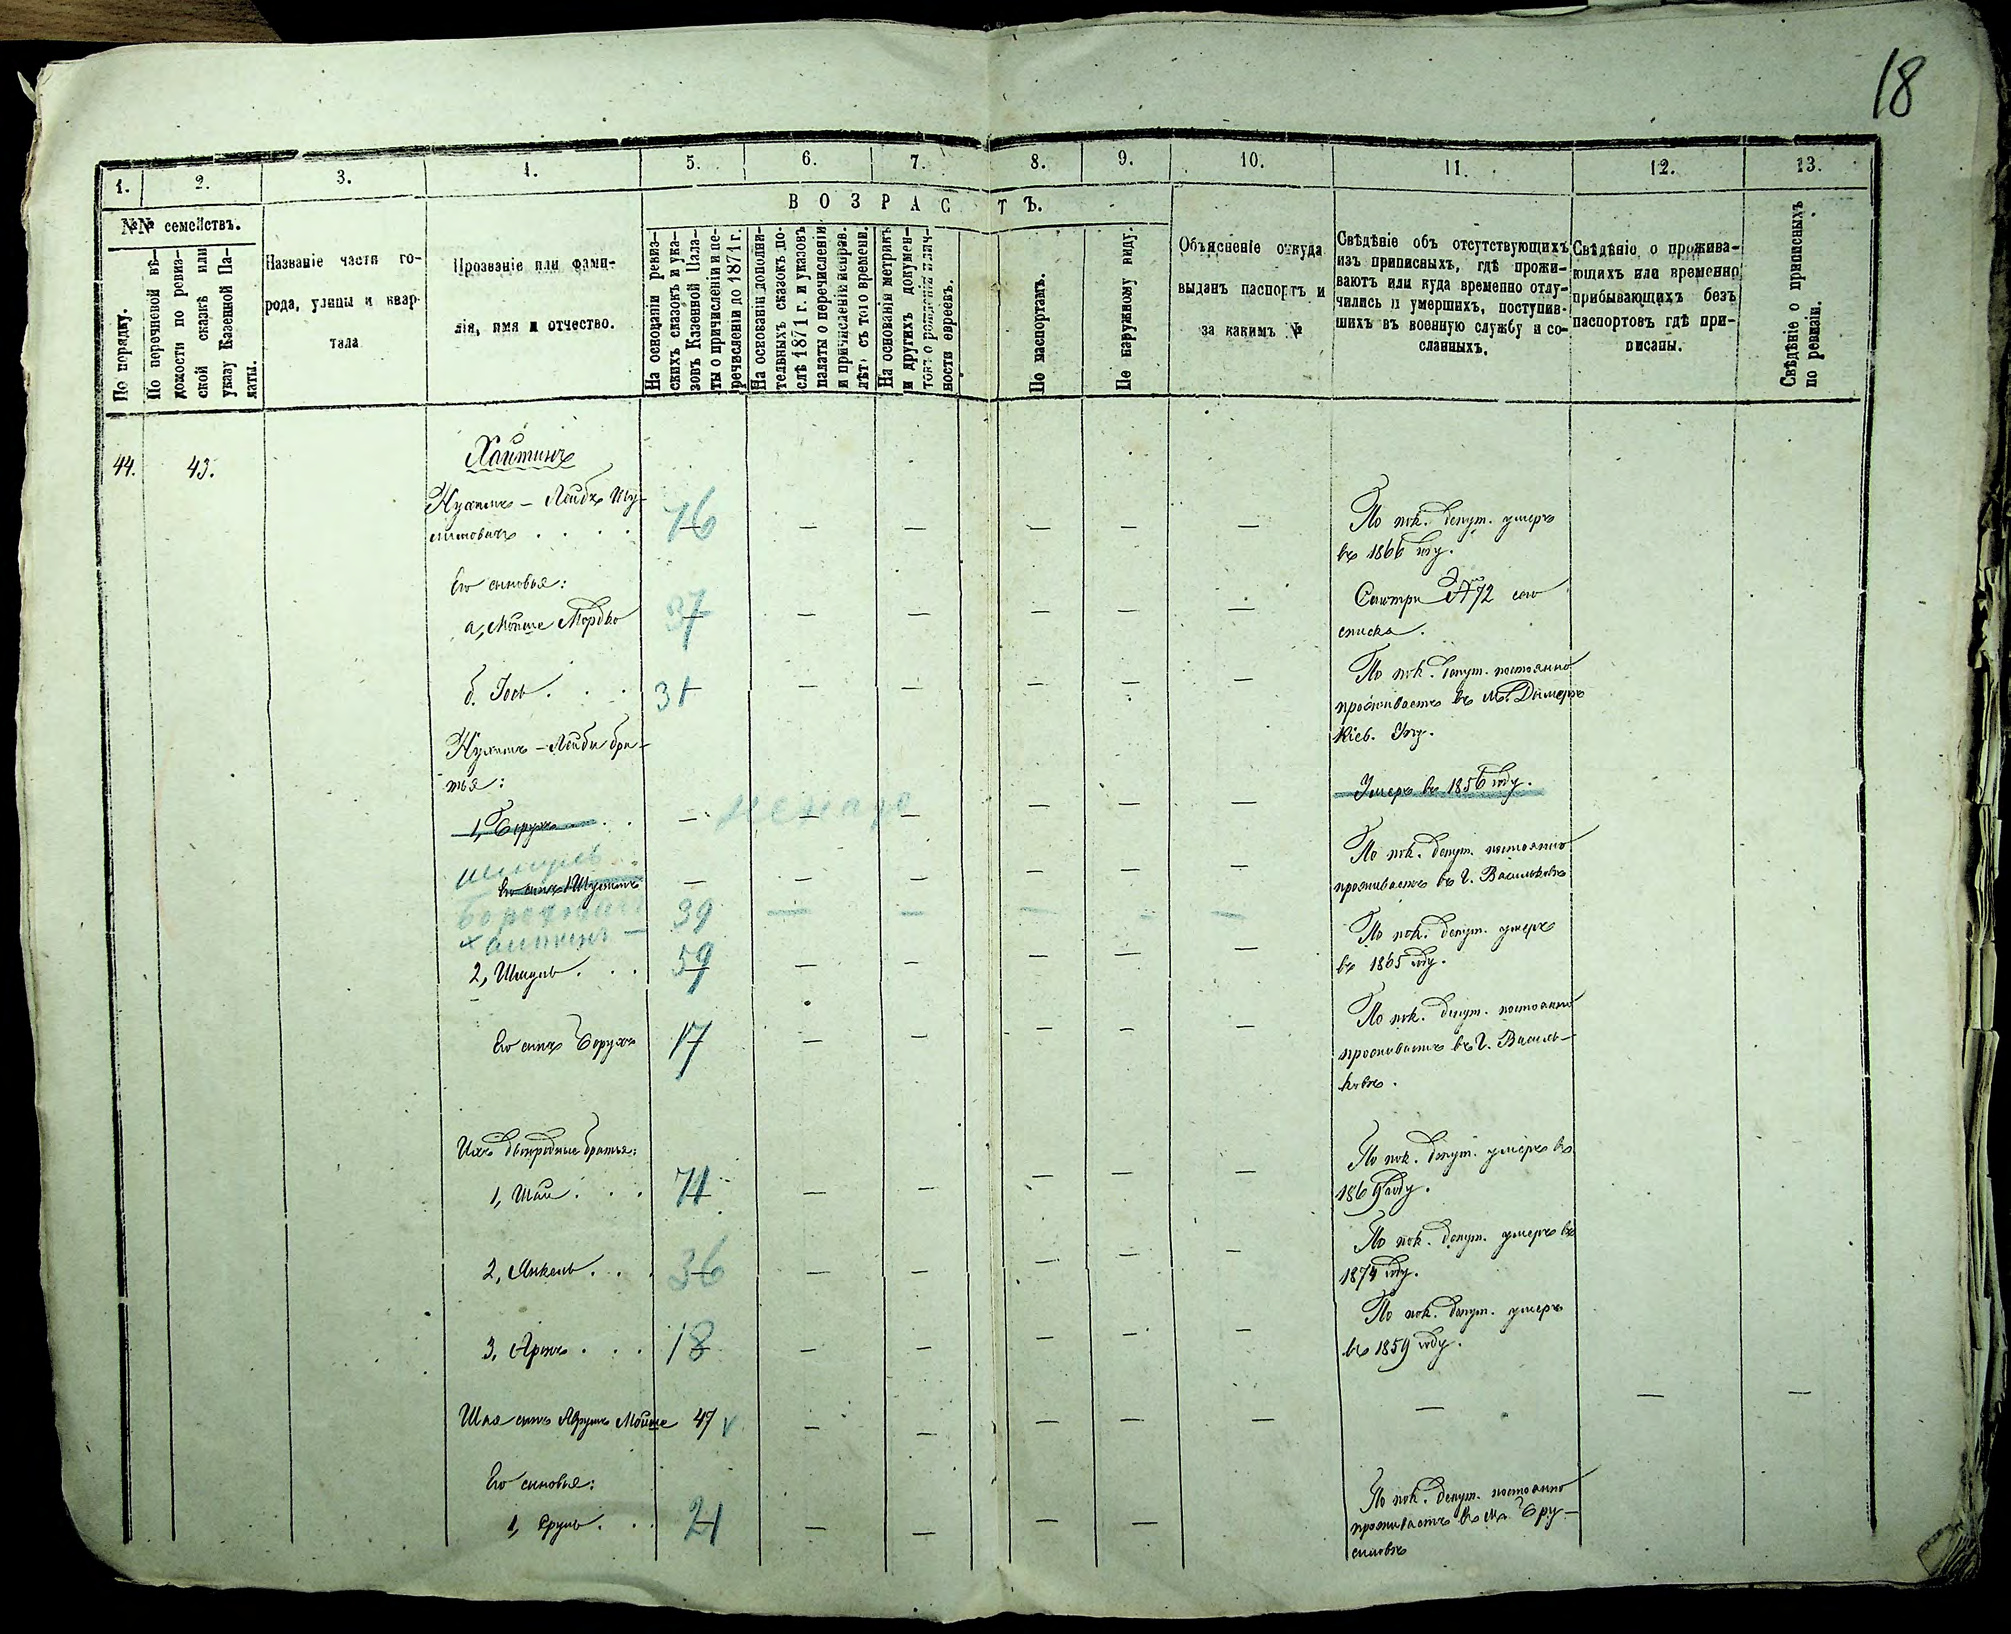 18
1. 2. 3. 4. 5. 6. 7. 8. 9. 10. 11. 12. 13.
ВОЗРАСТЪ.
№№ семействъ.
По порядку.
По перечневой вѣ-
домости по ревиз-
ской сказкѣ или
указу Казенной Па-
латы.
Названіе части го-
рода, улицы и квар-
тала
Прозваніе или фами-
лія, имя и отчество.
На основаніи ревиз-
скихъ сказокъ и ука-
зовъ Казенной Пала-
ты о причисленіи и пе-
речисленіи до 1871 г.
На основаніи дополни-
тельныхъ сказокъ по-
слѣ 1871 г. и указовъ
палаты о перечисленіи
и причисленіи исправ.
лѣтъ съ того времени.
На основаніи метрикъ
и другихъ докумен-
товъ о рожденіи и лич-
ности евреевъ.
По паспортамъ.
По наружному виду.
Объясненіе откуда
выданъ паспортъ и
за какимъ №
Свѣдѣніе объ отсутствующихъ
изъ приписныхъ, гдѣ прожи-
ваютъ или куда временно отлу-
чились и умершихъ, поступив-
шихъ въ военную службу и со-
сланныхъ.
Свѣдѣніе о прожива-
ющихъ или временно
прибывающихъ безъ
паспортовъ гдѣ при-
писаны.
Свѣдѣніе о приписныхъ
по ревизіи.
44. 43. Хаитинъ
Нухимъ – Лейбъ
76 — — — — — По пок. депут. умеръ
въ 1866 году.
Его сыновья:
а, Мойше Мордко 37 — — — — — Смотри № 72 сего
списка.
б. Іось . . . 31 — — — — — По пок. депут. постоянно
проживаетъ въ м. Дымеръ
Кіев. Уѣз.
Нухимъ – Лейби бра-
тья:
1, Борухъ . . — — — — — — Умеръ въ 1856 году.
Шмуль
Его сынъ — — — — — — По пок. депут. постоянно
проживаетъ въ г. Васильковѣ
Хаитинъ — 39 — — — — —
2, Шмуль . . . 59 — — — — — По пок. депут. умеръ
въ 1865 году.
Его сынъ Борухъ 17 — — — — — По пок. депут. постоянно
проживаетъ въ г. Василь-
ковѣ.
Ихъ двоюродные братья:
1, Шая . . . 71 — — — — — По пок. депут. умеръ въ
1869 году.
2, Янкель . . . 36 — — — — — По пок. депут. умеръ въ
1874 году.
3, Аронъ . . . 18 — — — — — По пок. депут. умеръ
въ 1859 году.
Шая сынъ Аврумъ Мойше 47 — — — — — — — —
Его сыновья:
1, Сруль . . . 21 — — — — По пок. депут. постоянно
проживаетъ въ м. Бру-
силовѣ